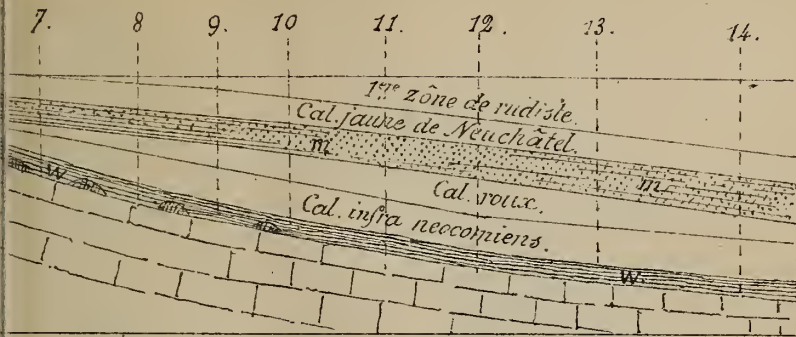 7. 8 9. 10 11. 12. 13. 14.
1ere zône de rudiste.
Cal. jaune de Neuchâtel.
m. m.
Cal. roux.
Cal. infra neocomiens.
W W.